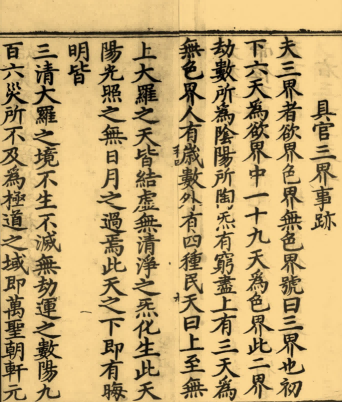 具官三界事跡
夫三界者欲界色界無色界號曰三界也初
下六天為欲界中一十九天為色界此二界
劫數所為陰陽所陶炁有窮盡上有三天為
無色界人有歲數外有四種民天曰上至無
上大羅之天皆結虛無清淨之炁化生此天
陽光照之無日月之過焉此天之下即有晦
明皆
三清大羅之境不生不滅無劫運之數陽九
百六災所不及為極道之域即萬聖朝軒元